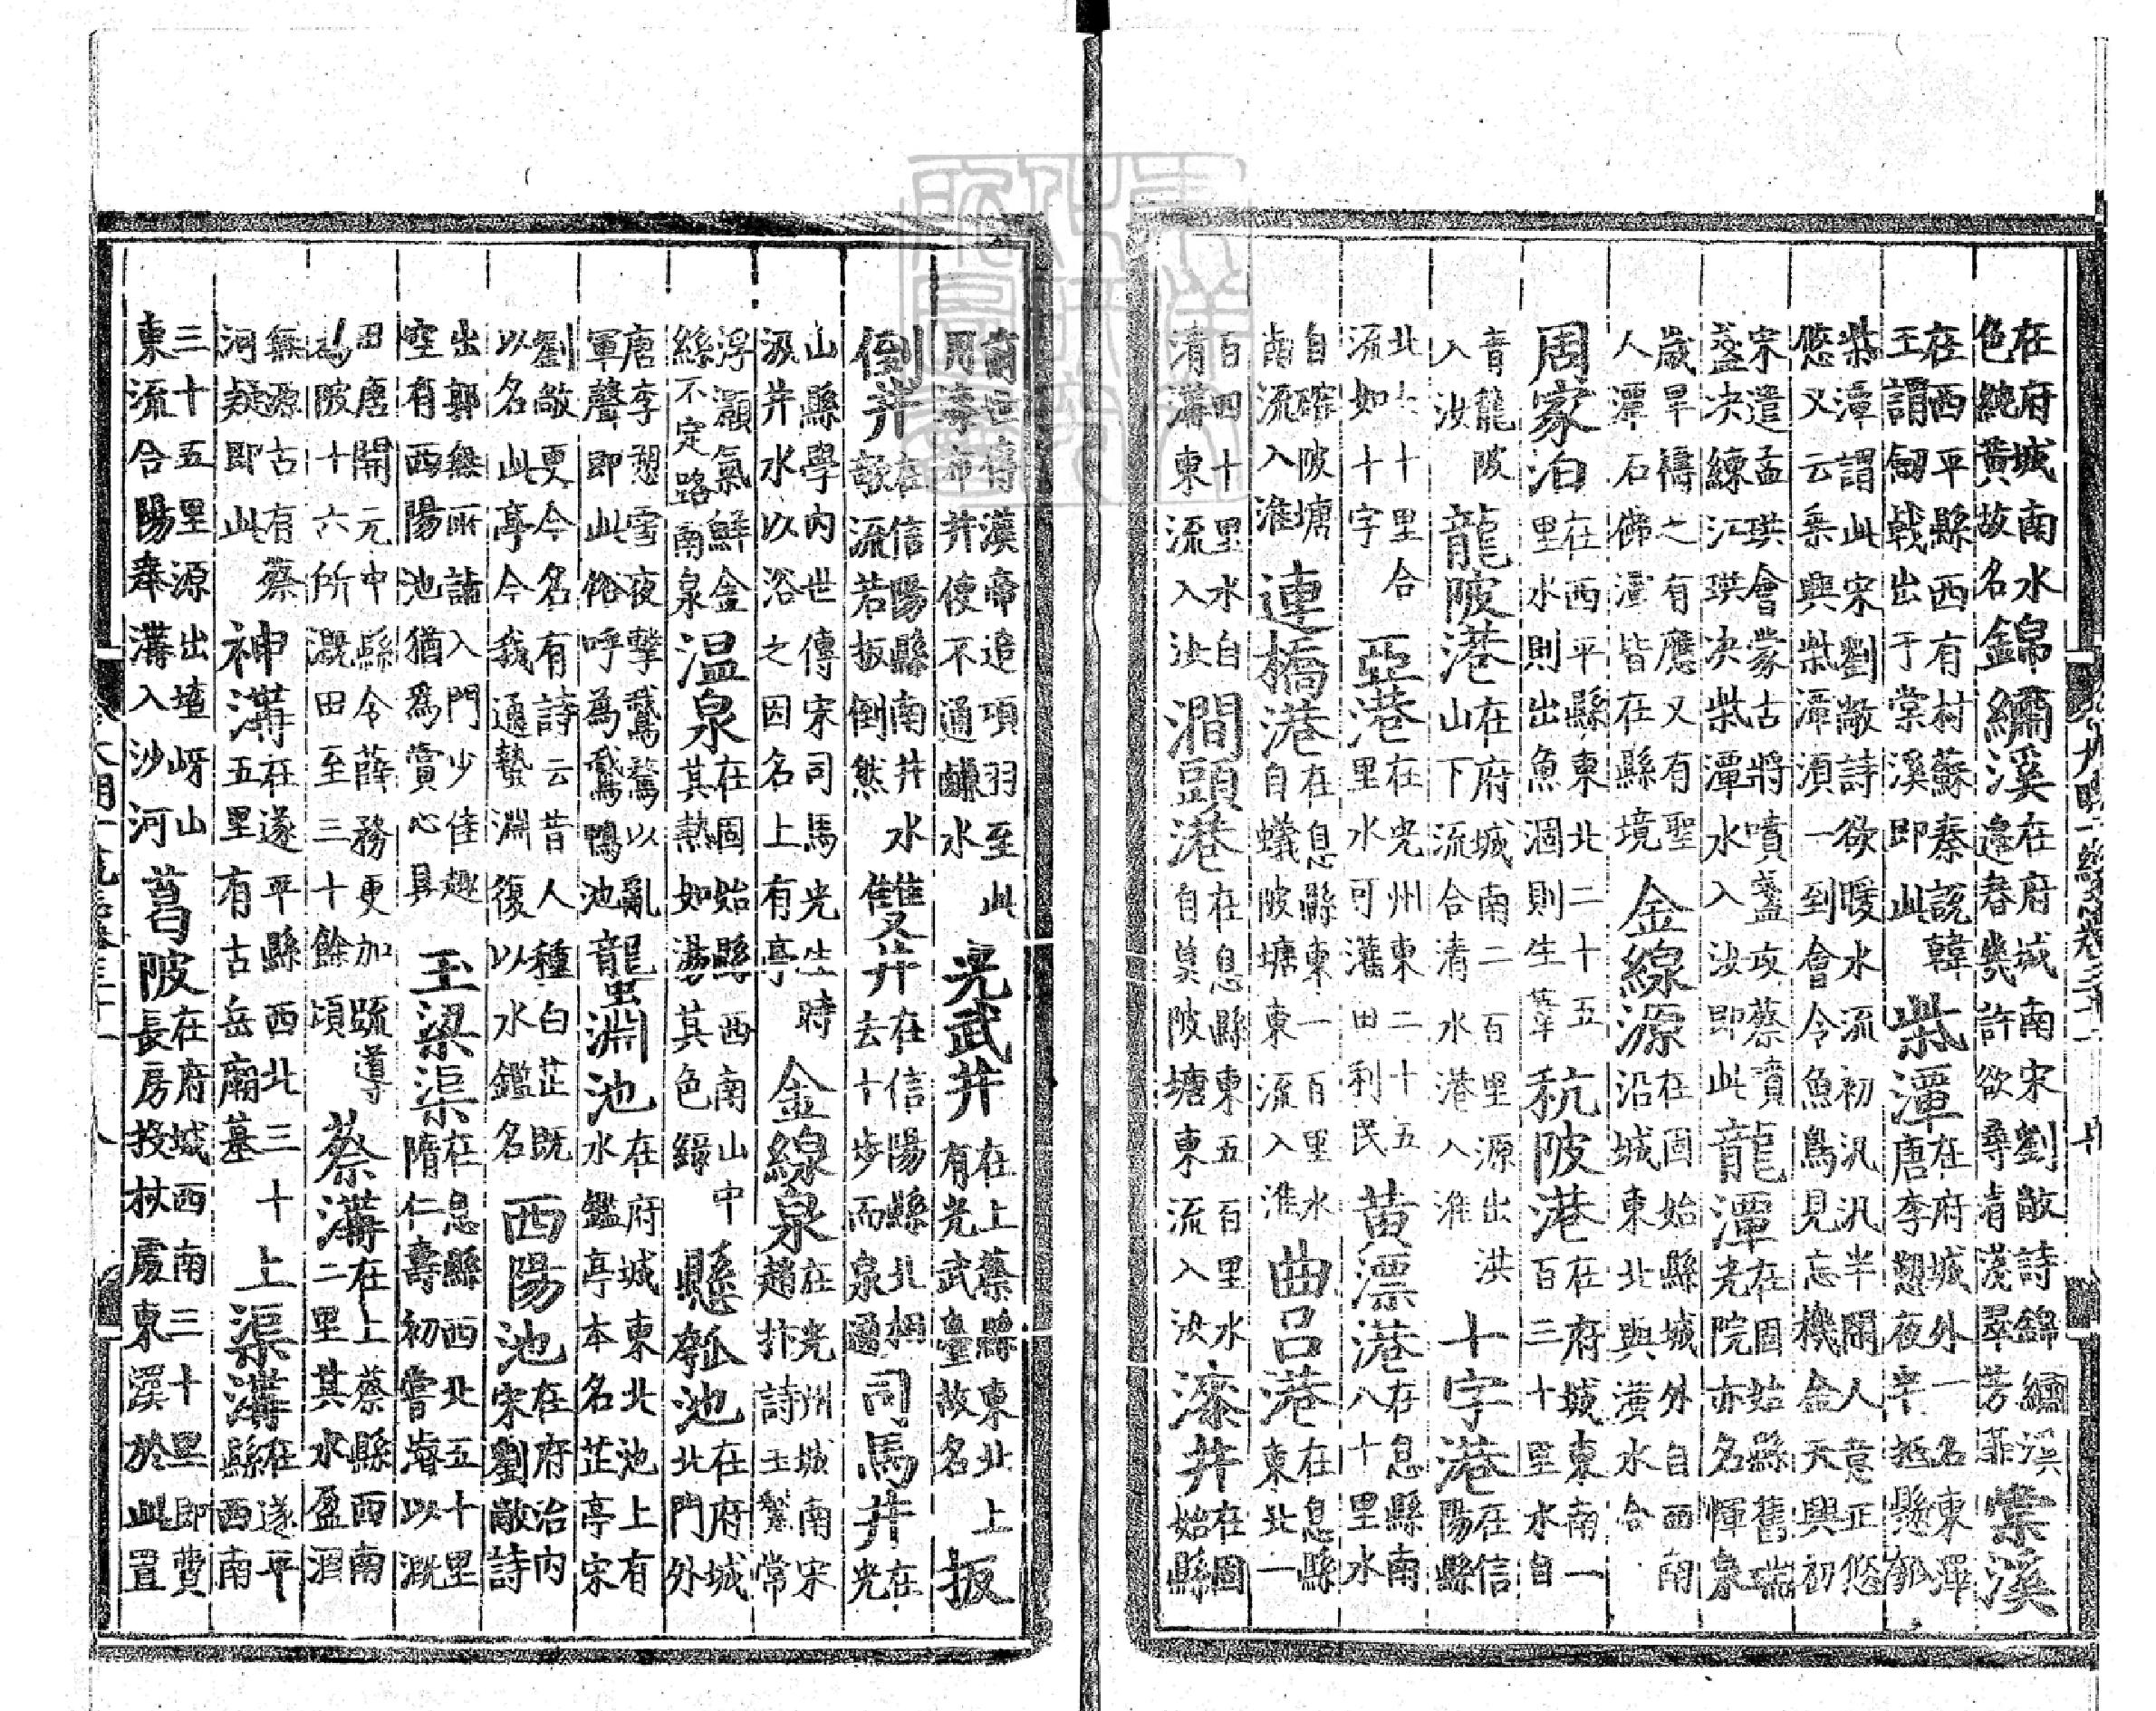 在府城南水色純黃故名錦繡溪在府城南宋劉敞詩錦繡溪邉春幾許欲尋有淺翠芳菲棠溪
在西平縣西有村蘇秦說韓王謂劒戟出于棠溪即此柴潭在府城外一名東潭唐李愬夜半抵懸瓠
柴潭謂此宋劉敞詩欲暖水流初汎汎半閒人意正悠悠又云乘興柴潭湏一到會令魚鳥見忘機金天興初
宋遣孟珙會蒙古將噴盞攻蔡賁盞决練江珙决柴潭水入汝即此龍潭在固始縣舊瑞光院亦名惲泉
歲旱禱之有應又有聖人潭石佛潭皆在縣境金線源在固始縣城外自西南沿城東北與潢水合
周家泊在西平縣東北二十五里水則出魚涸則生葦秔陂港在府城東南一百三十里水自
青龍陂入汝龍陂港在府城南二百里源出洪山下流合清水港入淮十字港在信陽縣
北六十里合流如十字亞港在光州東二十五里水可灌田利民黃漂港在息縣南八十里水
自確陂塘南流入淮連橋港在息縣東一百里水自蟻陂塘東流入淮曲呂港在息縣東北一
百四十里水自清溝東流入汝澗頭港在息縣東五百里水自莫陂塘東流入汝漆井在固始縣
南世傳漢帝追項羽至此用毒布井使不通鹹水光武井在上蔡縣東北上有光武臺故名扳
倒井在信陽縣南井水雖欹流若扳倒然雙井在信陽縣北相去十步而泉通司馬井在光
山縣學內世傳宋司馬光生時汲井水以浴之因名上有亭金線泉在光州城南宋趙抃詩玉甃常
浮灝氣鮮金絲不定路南泉温泉在固始縣西南山中其熱如湯其色綠懸瓠池在府城北門外
唐李愬雪夜擊鵞鶩以亂軍聲即此俗呼為鵞鴨池龍淵池在府城東北池上有水鑑亭本名芷亭宋
劉敞更今名有詩云昔人種白芷既以名此亭今我適蟄淵復以水鑑名西陽池在府治內宋劉敞詩
出郭無所詣入門少佳趣空有西陽池猶爲賞心具玉梁渠在息縣西北五十里隋仁壽初嘗濬以溉
田唐開元中縣令薛務更加疏導陂十六所溉田至三十餘頃蔡溝在上蔡縣西南二里其水盈涸
無源古有蔡河疑即此神溝在遂平縣西北三十五里有古岳廟墓上渠溝在遂平縣西南
三十五里源出岈山東流合陽奉溝入沙河葛陂在府城西南三十里即費長房投杖處東溪於此置